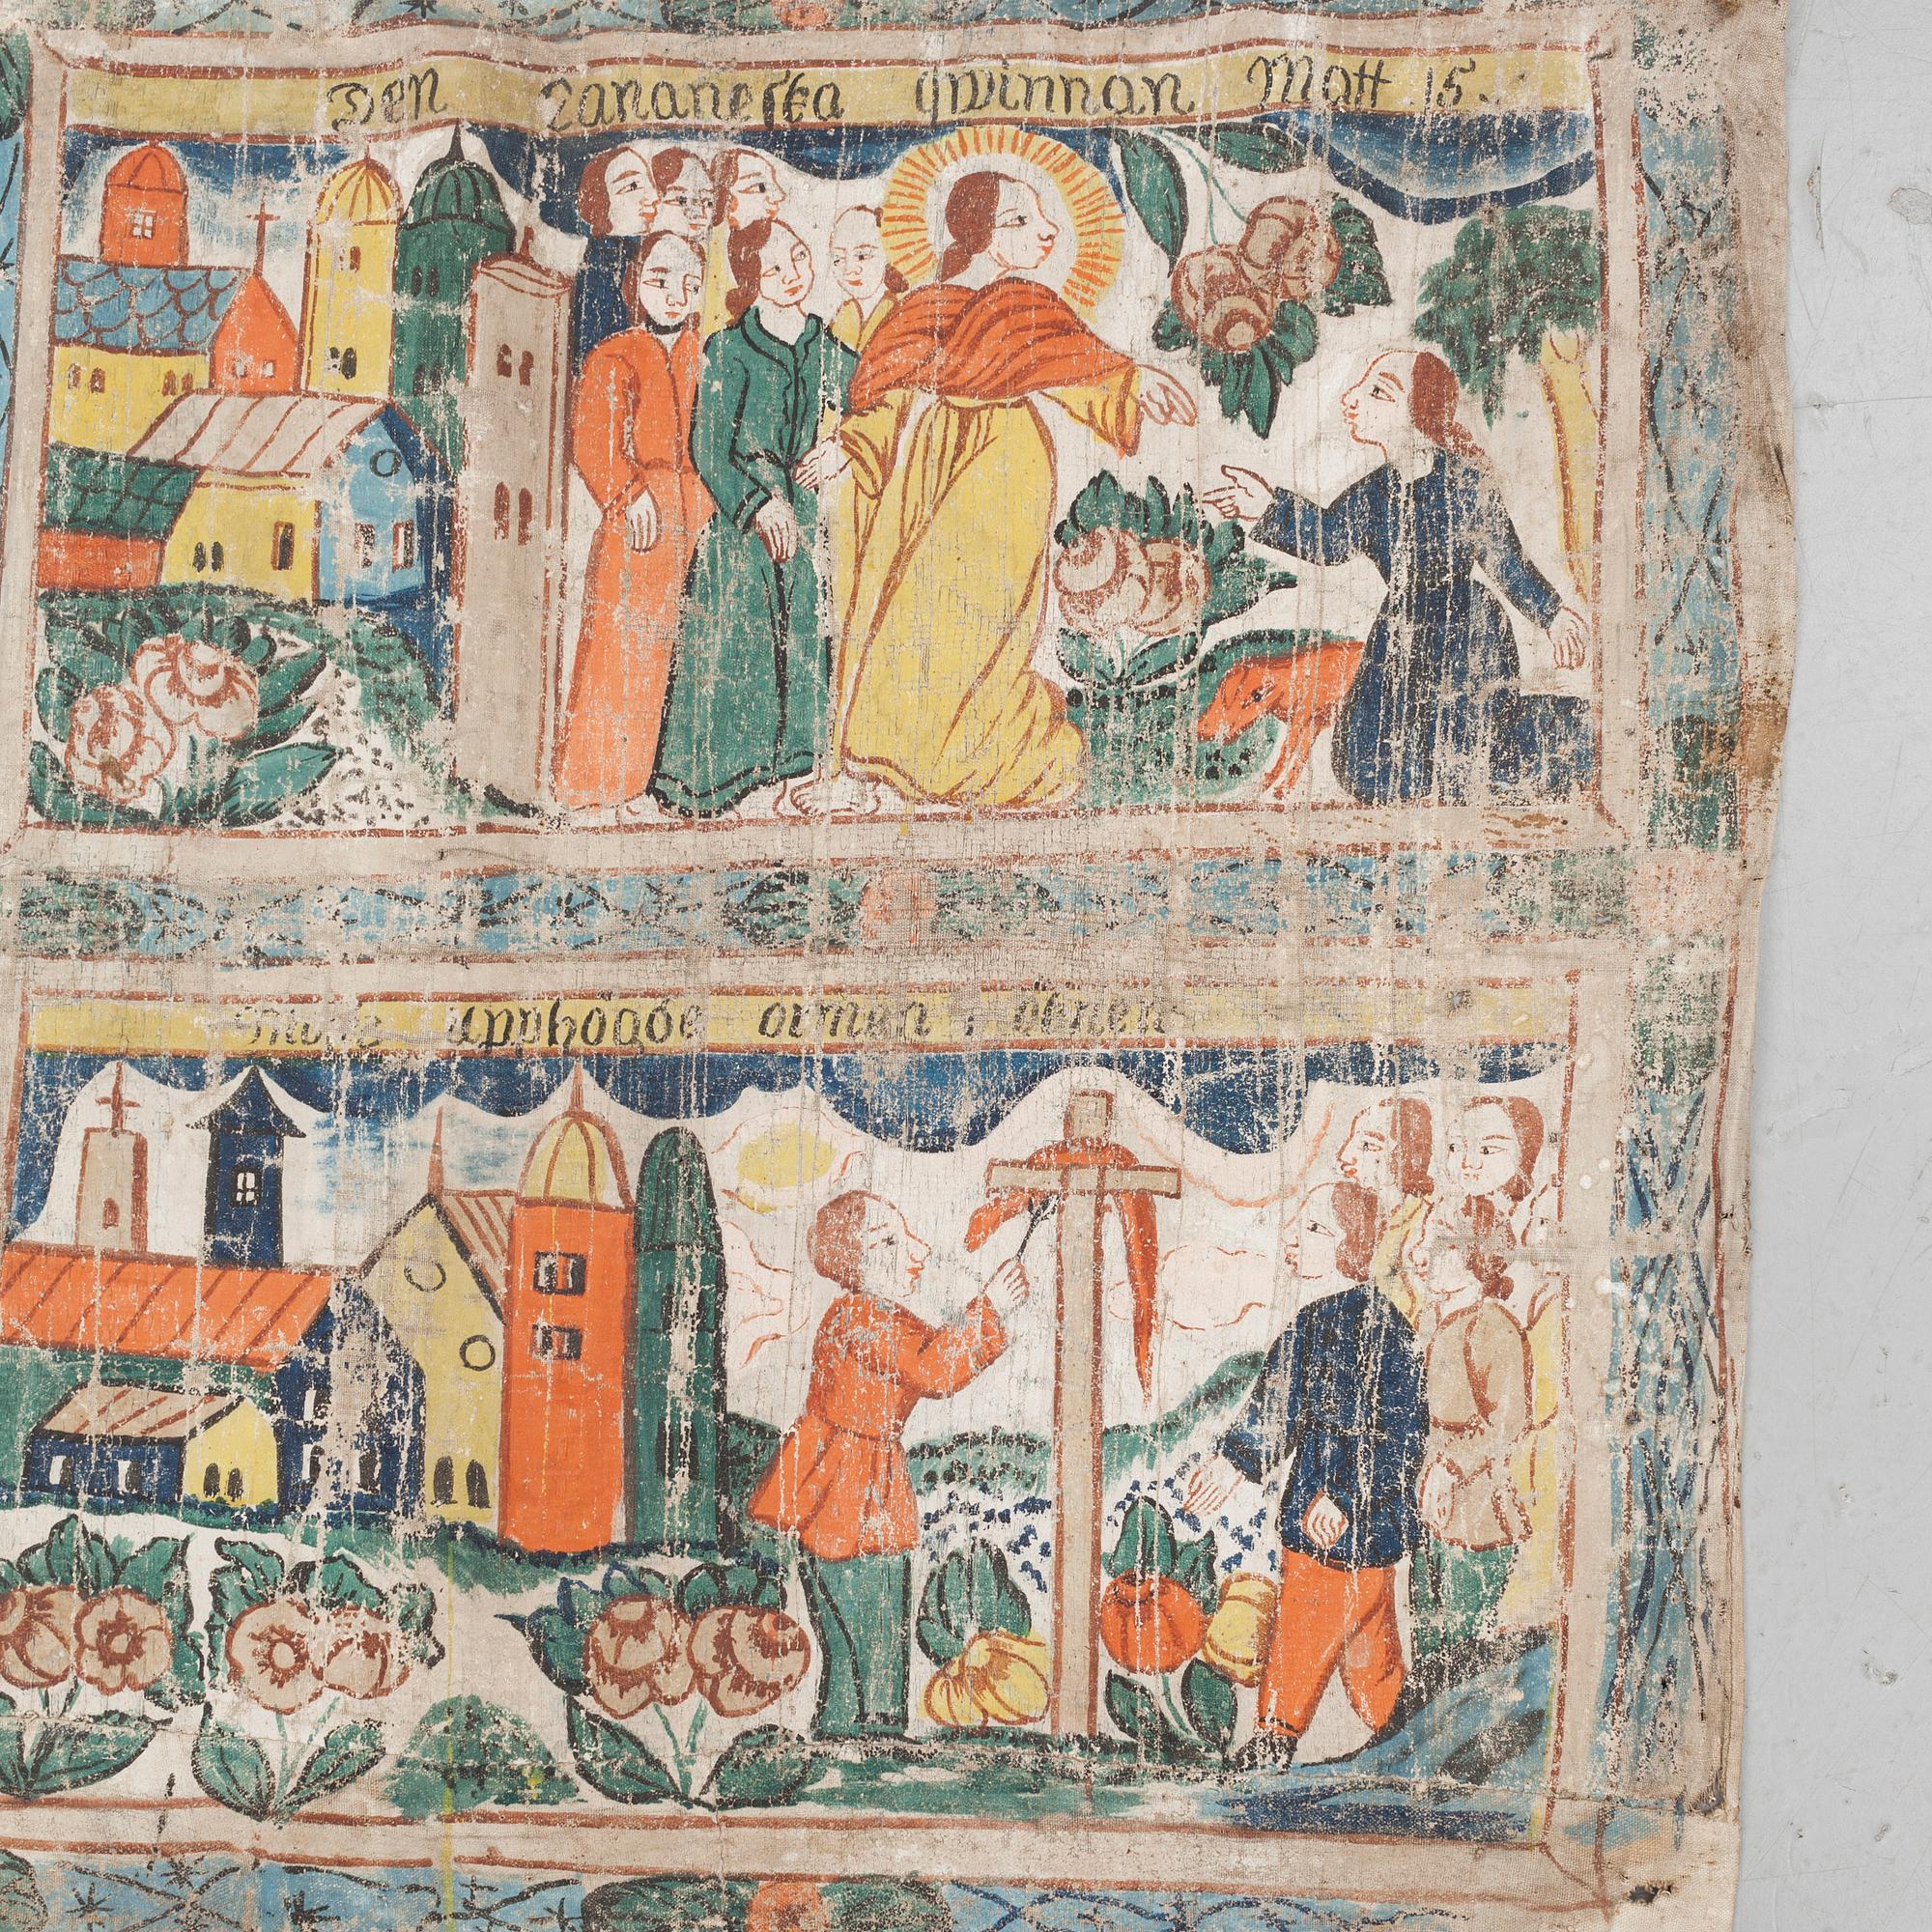 Den Cananeska qwinnan Matt 15.
Mose upphögde ormen i öknen